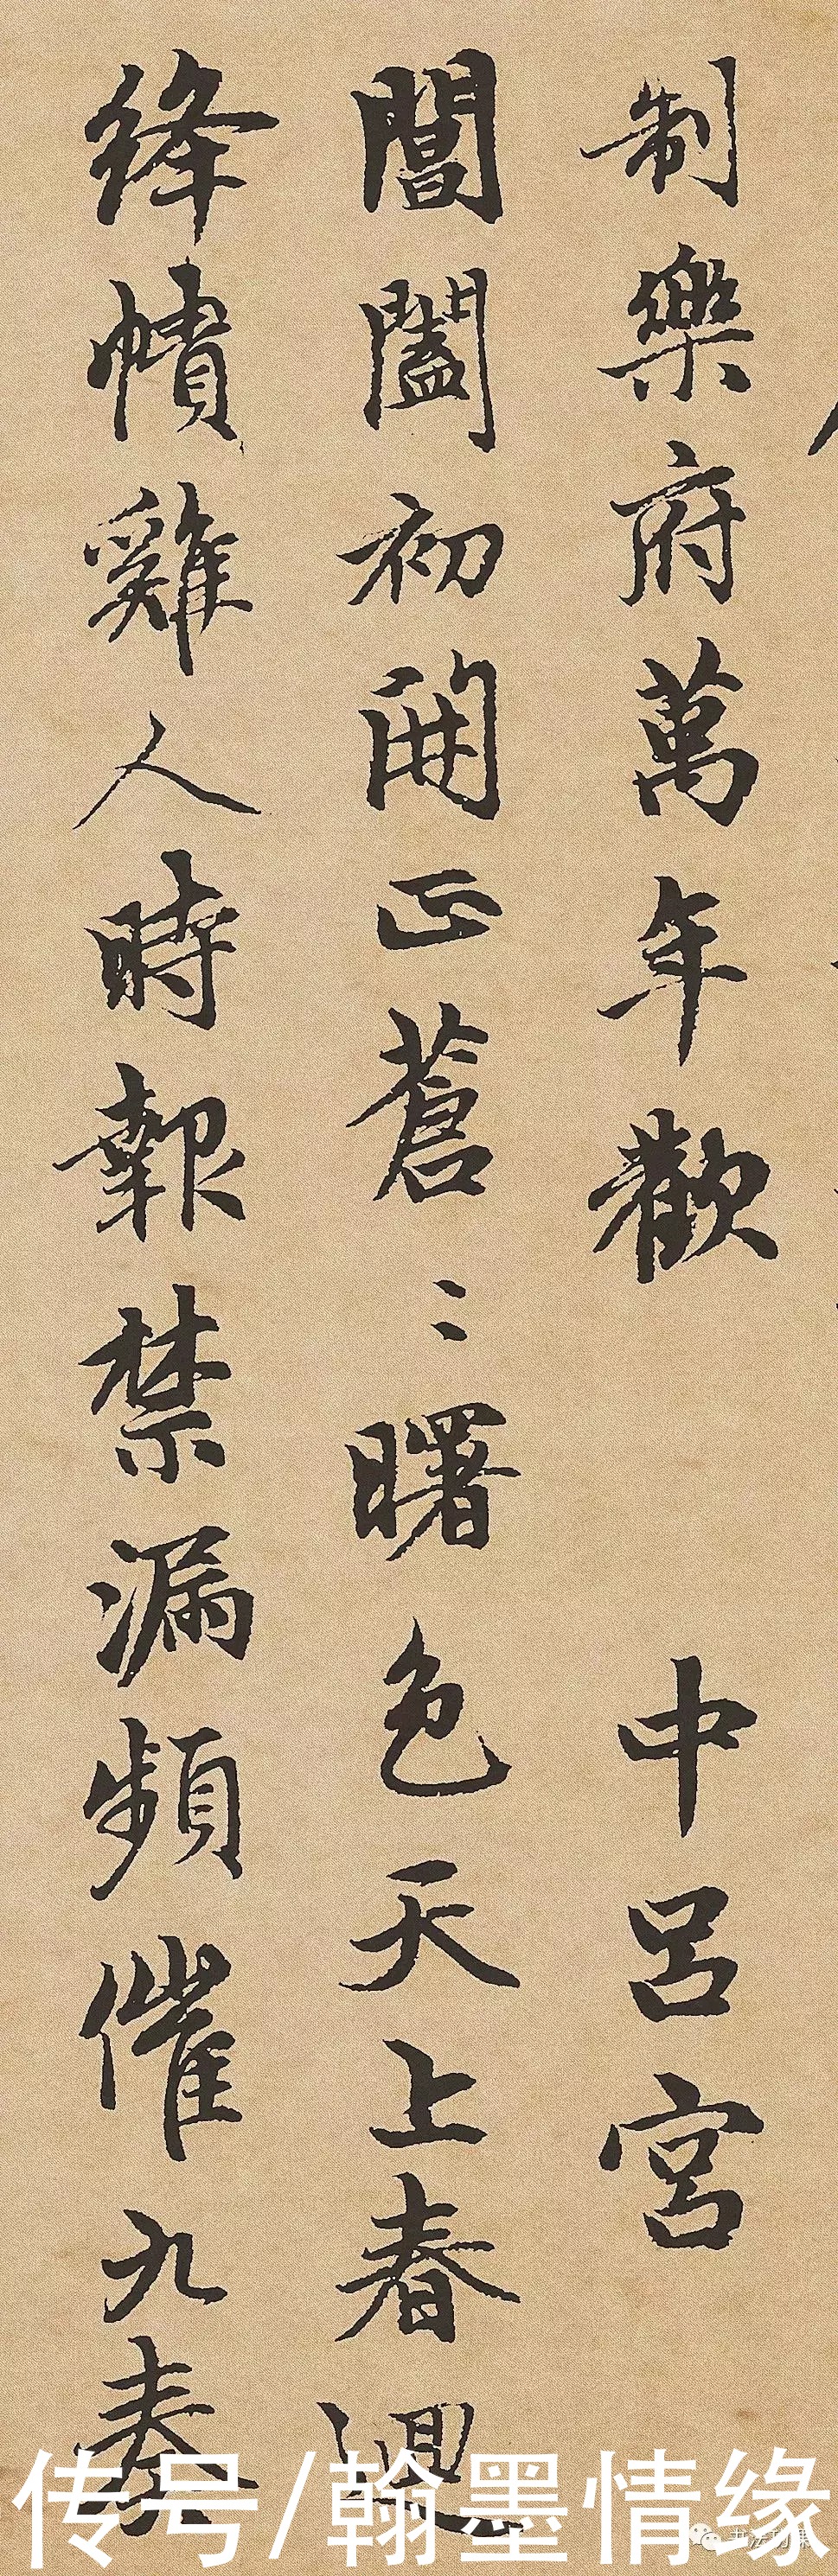 制樂府萬年歡 中呂宮
閶闔初開正蒼〻曙色天上春迴
絳幘雞人時報禁漏頻催九奏
传号/翰墨情缘